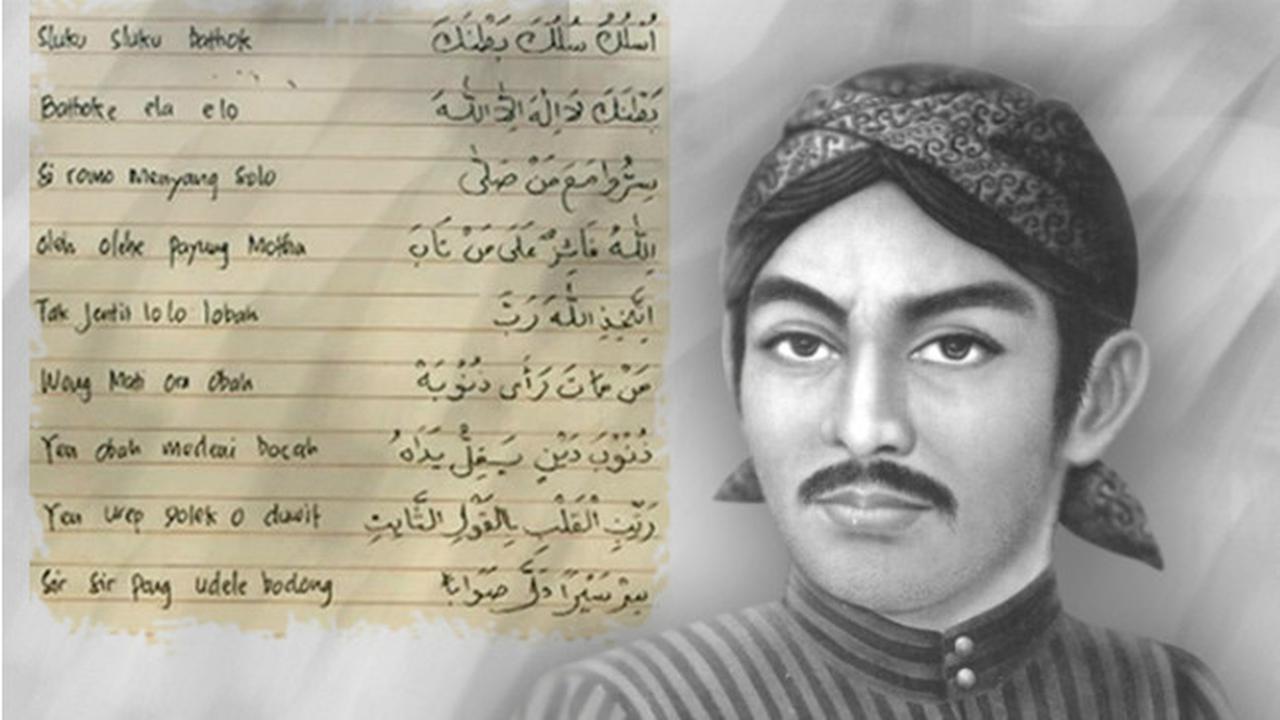 Sluku sluku bathok اُسْلُكْ سُلُكَ بَطْنَكَ
Bathoke ela elo بَطْنَكَ لَا اِلٰهَ اِلَّا اللّٰه
Si romo menyang Solo سِرُّوا مَعَ مَنْ صَلّٰى
oleh olehe payung Motha اللّٰهُ عَلَى مَنْ تَابَ
Tak jentit lolo lobah اِتَّخِذِ اللّٰهَ رَبَّ
Wong Mati ora obah مَنْ مَاتَ رَأَى ذُنُوْبَهْ
Yen obah medeni bocah ذُنُوْبَ دَيْنٍ يَدَاهُ
Yen urep golek o duwit الْقَلْبِ بِالْقَوْلِ الثَّابِتِ
Sir sir pong udele bodong سِرْ سَيْرًا دَلَّ صَوَابًا